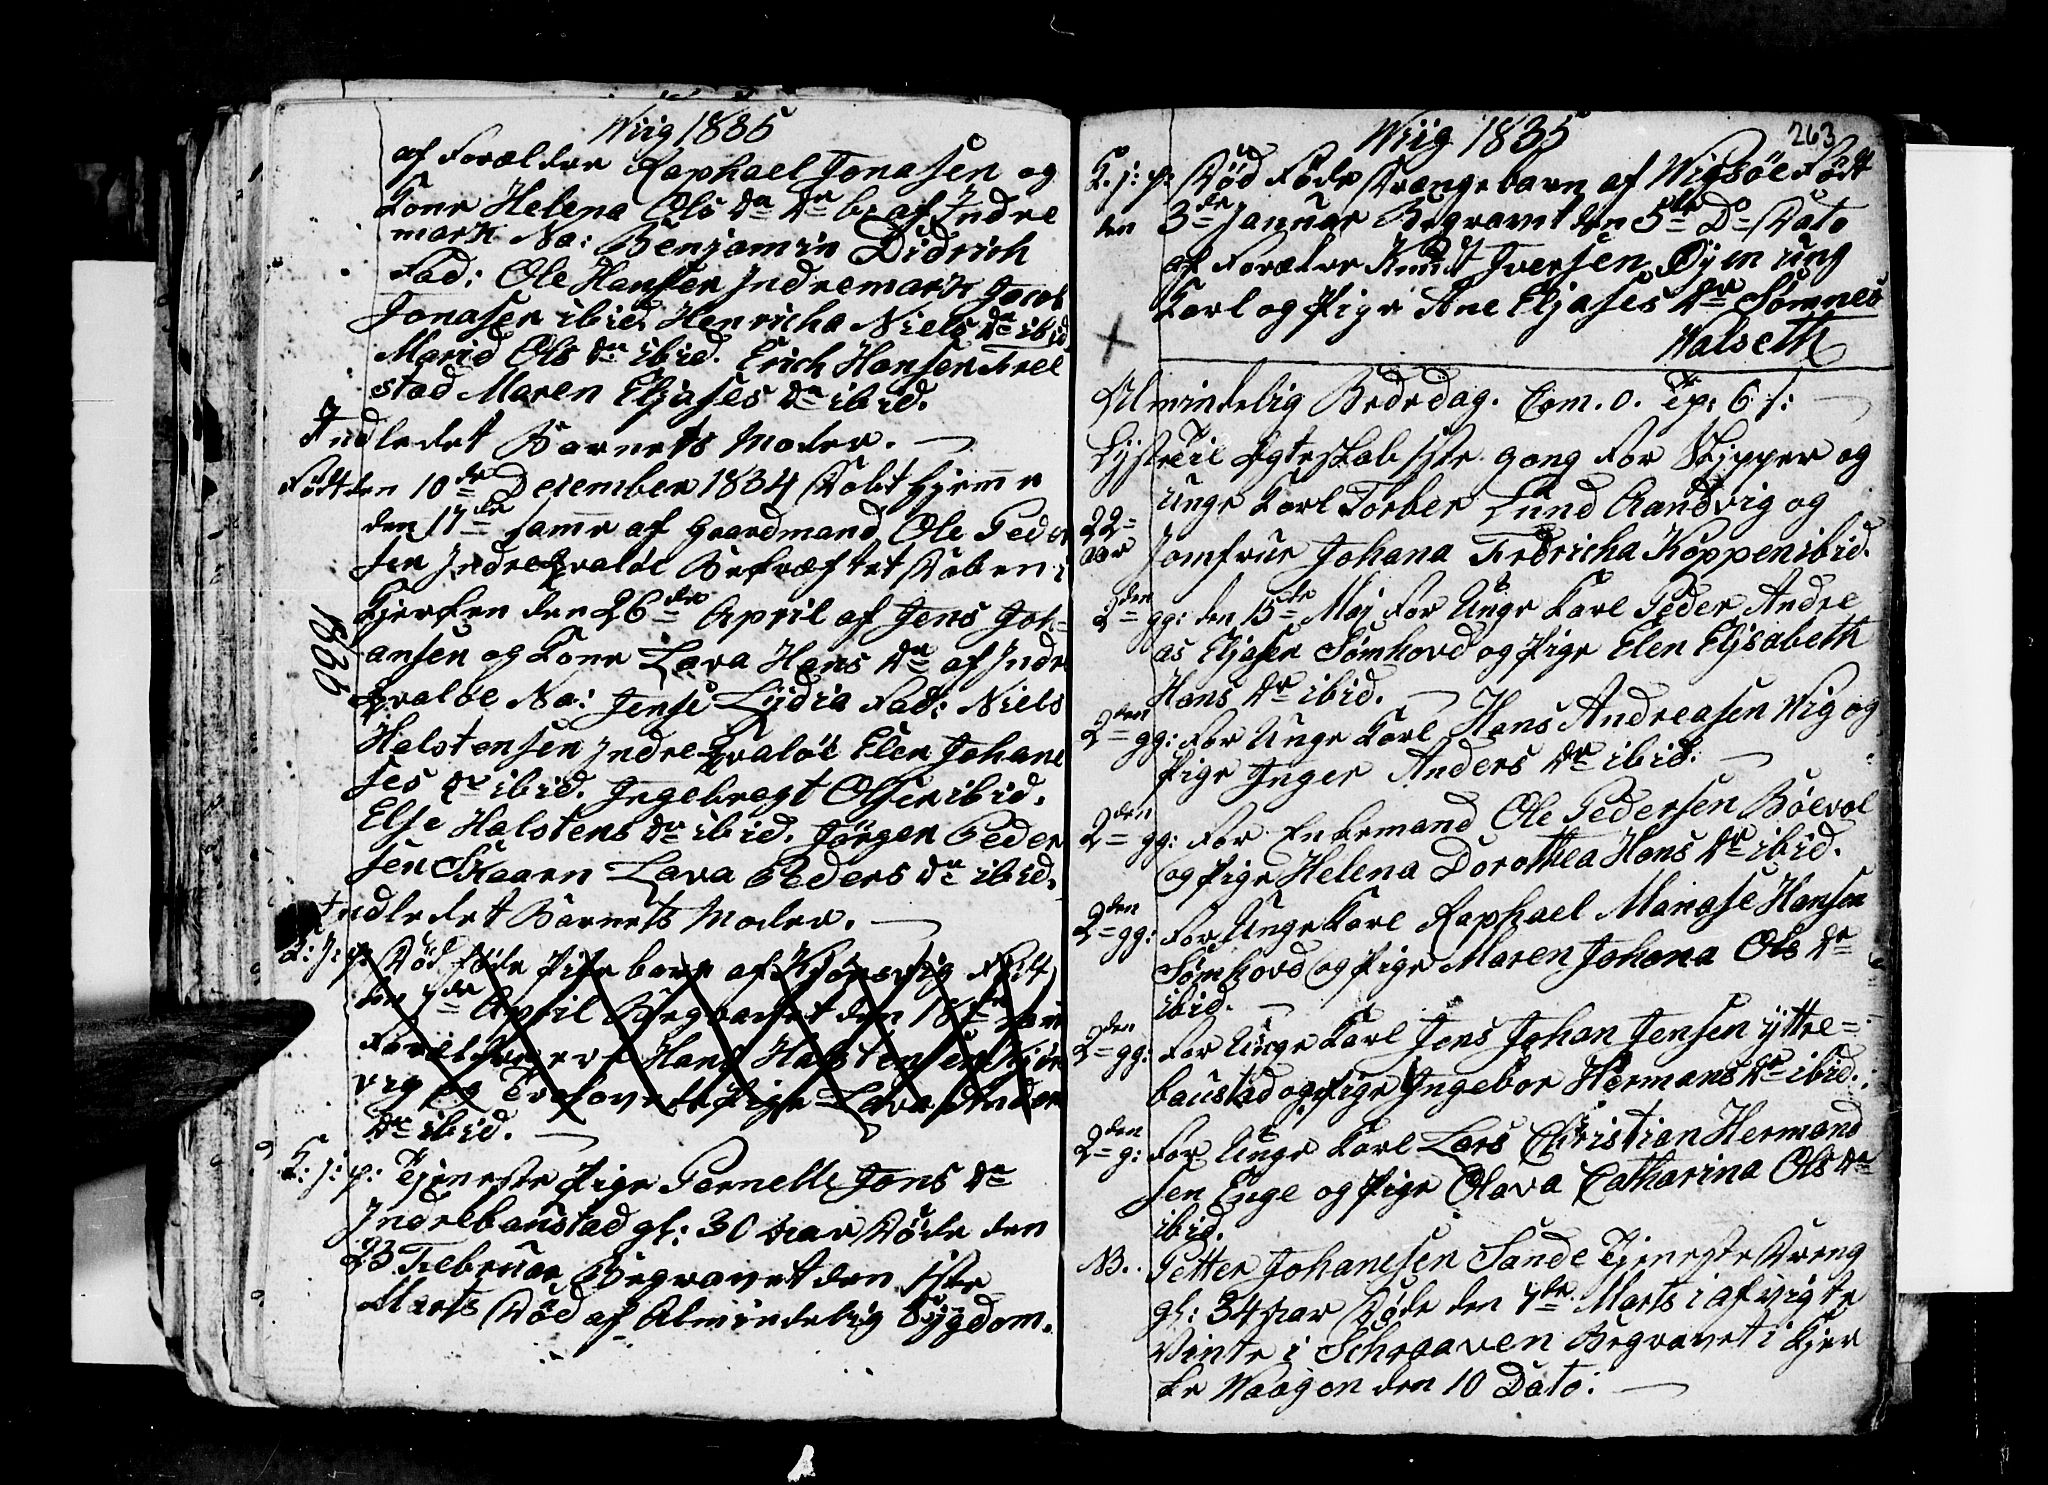 Wiig 1835
af Forældre Raphael Jonasen og
Kone Helena Ols Dr Dr b: af Indre
mark Na: Benjamin Didrich
Fad: Ole Hansen Indremark Jacob
Jonasen ibid. Henricha Niels Dr ibid
Marid Ols Dr ibid. Erich Hansen Trel
stad Maren Eljases Dr ibid.
Indledet Barnets Moder.
Født den 10de Desember 1834 Døbt hjemme
den 17de samme af Gaardmand Ole Peder
sen Indre Qvaløe Bekræftet Daaben i
Kjerken den 26de April af Jens Joh-
ansen og Kone Lava Hans Dr af Indre
Qvaløe Na: Jense Lydia Fad: Niels
1866
Halstensen Indre Qvaløe Elen Johane
ses Dr ibid. Ingebregt Olsen ibid.
Else Halstens Dr ibid. Jörgen Peder
sen Skaarn Lava Peders Dr ibid.
Indledet Barnets Moder.
K: j: p: Død føde Pige barn af Kjönsvig Født
den 7de April Begravet den 18de samme
Forældre ere Hans Halstensen Kjöns
vig og Trolovede Pige Lava Anders
Dr ibid.
K: j: p: Tjeneste Pige Pernelle Jons Dr
Indrebaustad gl: 30 aar Døde den
23 Februar Begravet den 1ste
Marts Død af Almindelig Sygdom.
Wiig 1835
263
K: j: p: Død Føde Drængebarn af Wigsöe Født
den 3de Januar Begravet den 5te Do Dato
af Forældre Knud Iversen Öym ung
Karl og Pige Ane Eljases Dr Sømnes
Walseth
Almindelig Bededag. Com. 0. Tp: 6 s:
Lyste Til Egteskab 1ste gang for Skipper og
unge Karl Torber Lund Randvig og
22-
aar
Jomfrue Johana Fredricha Koppen ibid.
2den gg: den 15de Maj for Unge Karl Peder Andre
as Eljasen Sömhovd og Pige Elen Elisabeth
Hans Dr ibid.
2den gg: for Unge Karl Hans Andreasen Wig og
Pige Inger Anders Dr ibid.
2den gg: for Enkemand Ole Pedersen Böevol
og Pige Helena Dorothea Hans Dr ibid.
2den gg: for Unge Karl Raphael Manase Hansen
Sömhovd og Pige Maren Johana Ols Dr
ibid.
2den gg: for Unge Karl Jons Johan Jensen ÿttre-
baustad og Pige Ingebor Hermans Dr ibid.
2den g: for Unge Karl Lars Christian Hermand
sen Enge og Pige Olava Catharina Ols Dr
ibid.
NB. Petter Johanesen Sande Tjeneste Dreng
gl: 34 aar Døde den 7de Marts i afvigte
Vinter i Schraaven Begravet i Kjer
ke Waagen den 10 Dato.